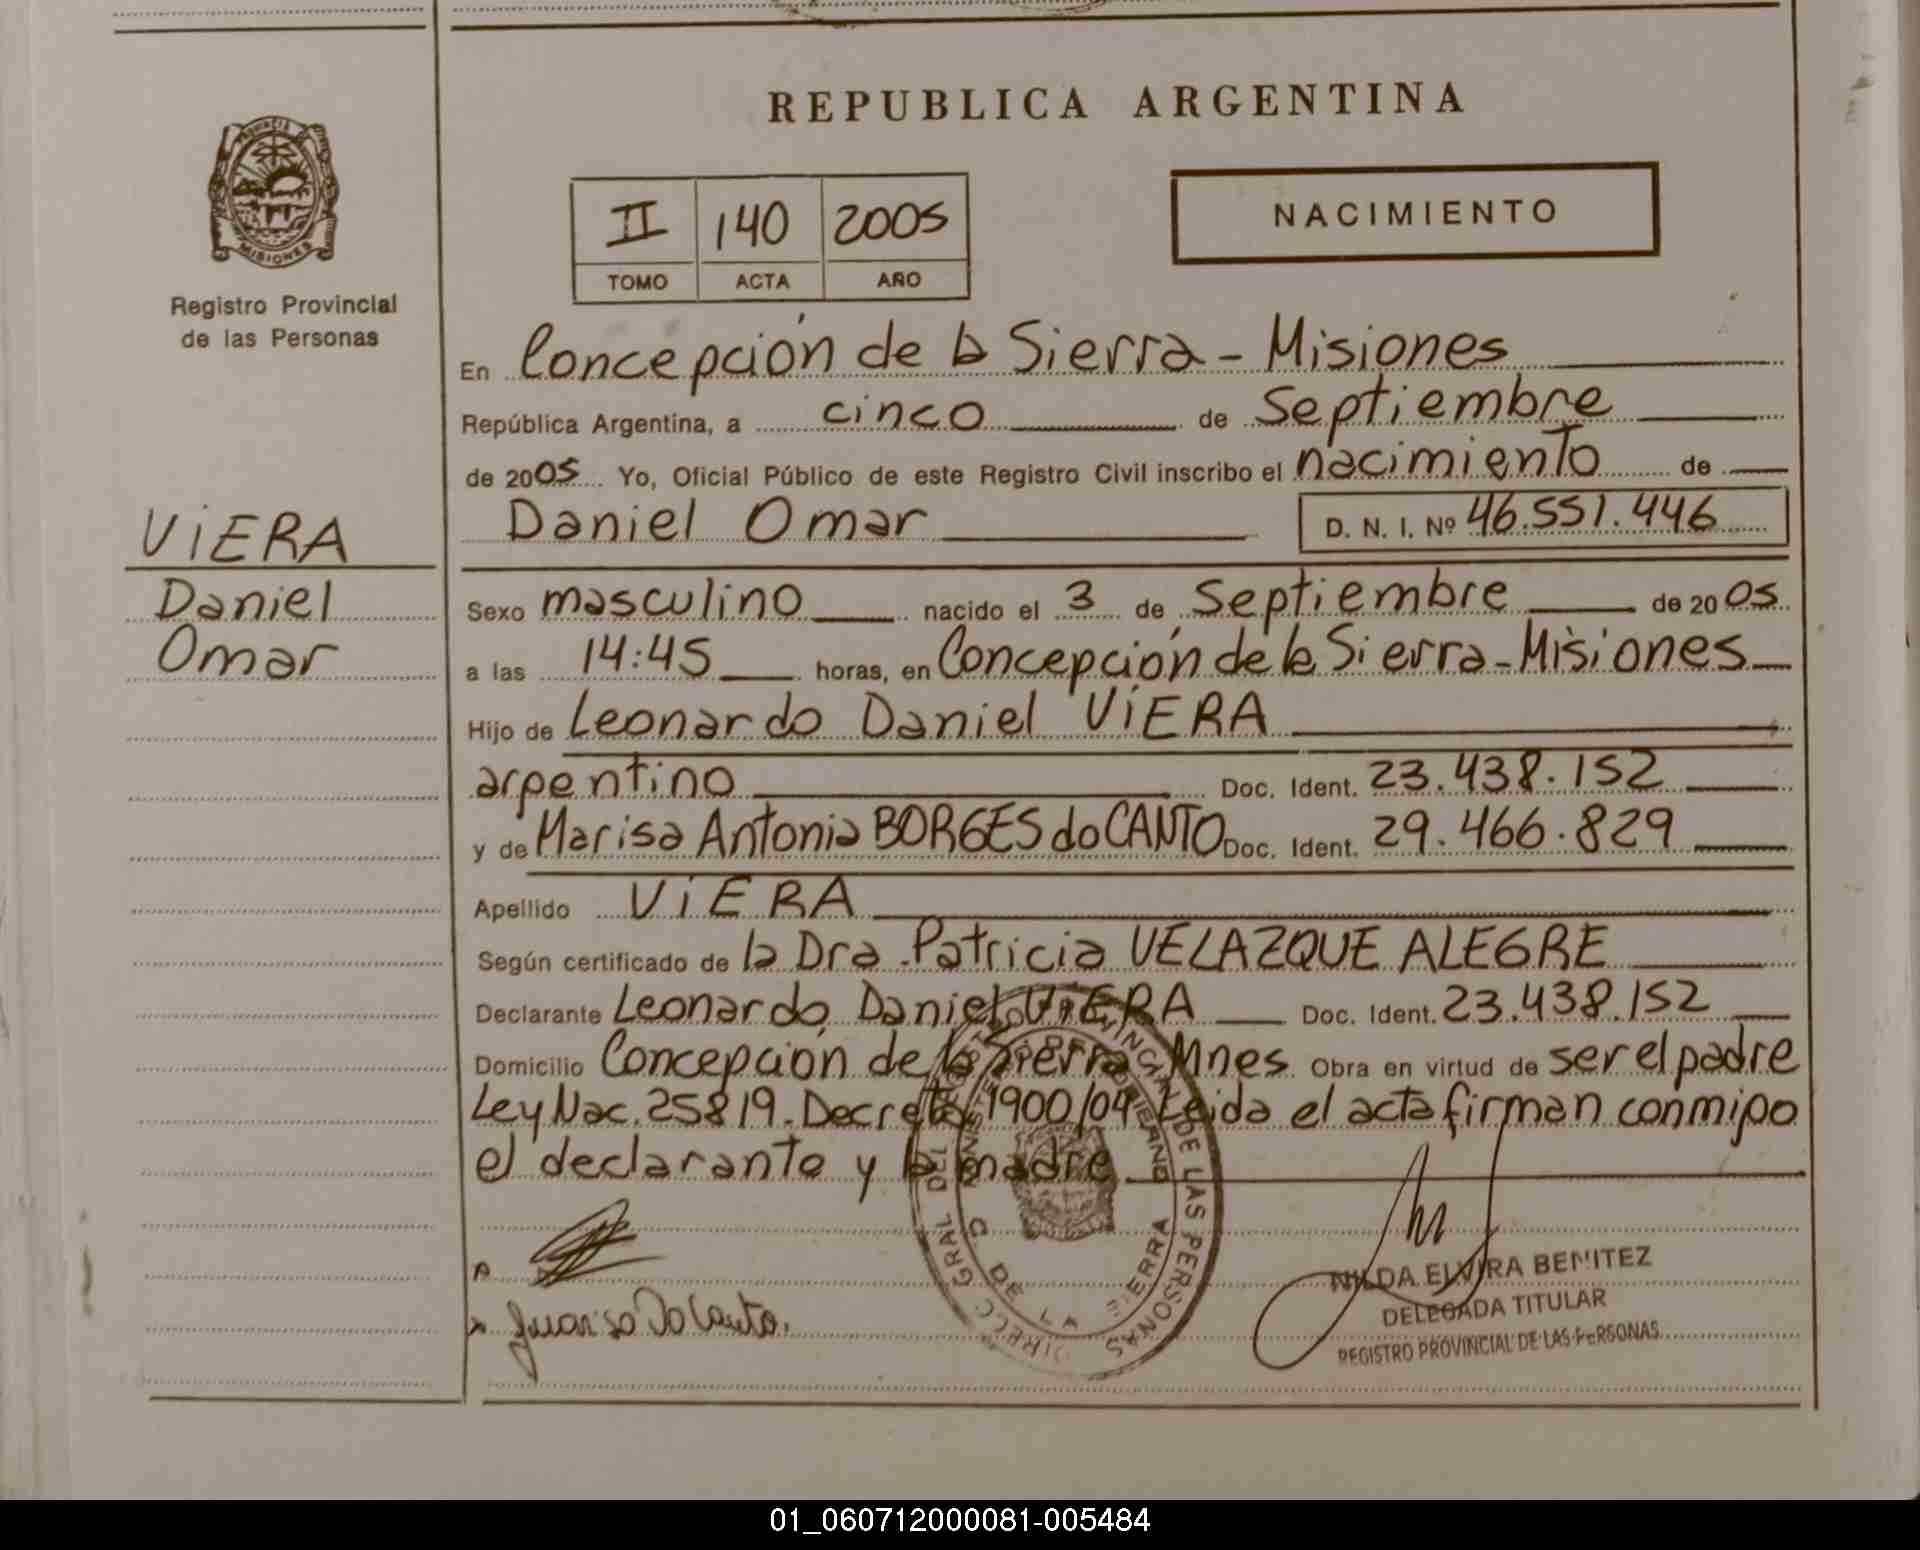 REPUBLICA ARGENTINA
PROVINCIA
MISIONES
Registro Provincial
de las Personas
II 140 2005
TOMO ACTA AÑO
NACIMIENTO
En Concepción de la Sierra - Misiones
República Argentina, a cinco de Septiembre
de 2005 Yo, Oficial Público de este Registro Civil inscribo el nacimiento de
Daniel Omar D. N. I. Nº 46.551.446
VIERA
Daniel
Omar
Sexo masculino nacido el 3 de Septiembre de 2005
a las 14:45 horas, en Concepción de la Sierra - Misiones
Hijo de Leonardo Daniel VIERA
argentino Doc. Ident. 23.438.152
y de Marisa Antonia BORGES do CANTO Doc. Ident. 29.466.829
Apellido VIERA
Según certificado de la Dra. Patricia VELAZQUE ALEGRE
Declarante Leonardo Daniel VIERA Doc. Ident. 23.438.152
Domicilio Concepción de la Sierra Mnes. Obra en virtud de ser el padre
Ley Nac. 25819. Decreto 1900/04 Leida el acta firman conmigo
el declarante y la madre
DIRECC GRAL DEL REGISTRO PROVINCIAL DE LAS PERSONAS
C DE LA SIERRA
Marisa Do Canto.
NILDA ELVIRA BENITEZ
DELEGADA TITULAR
REGISTRO PROVINCIAL DE LAS PERSONAS
01_060712000081-005484